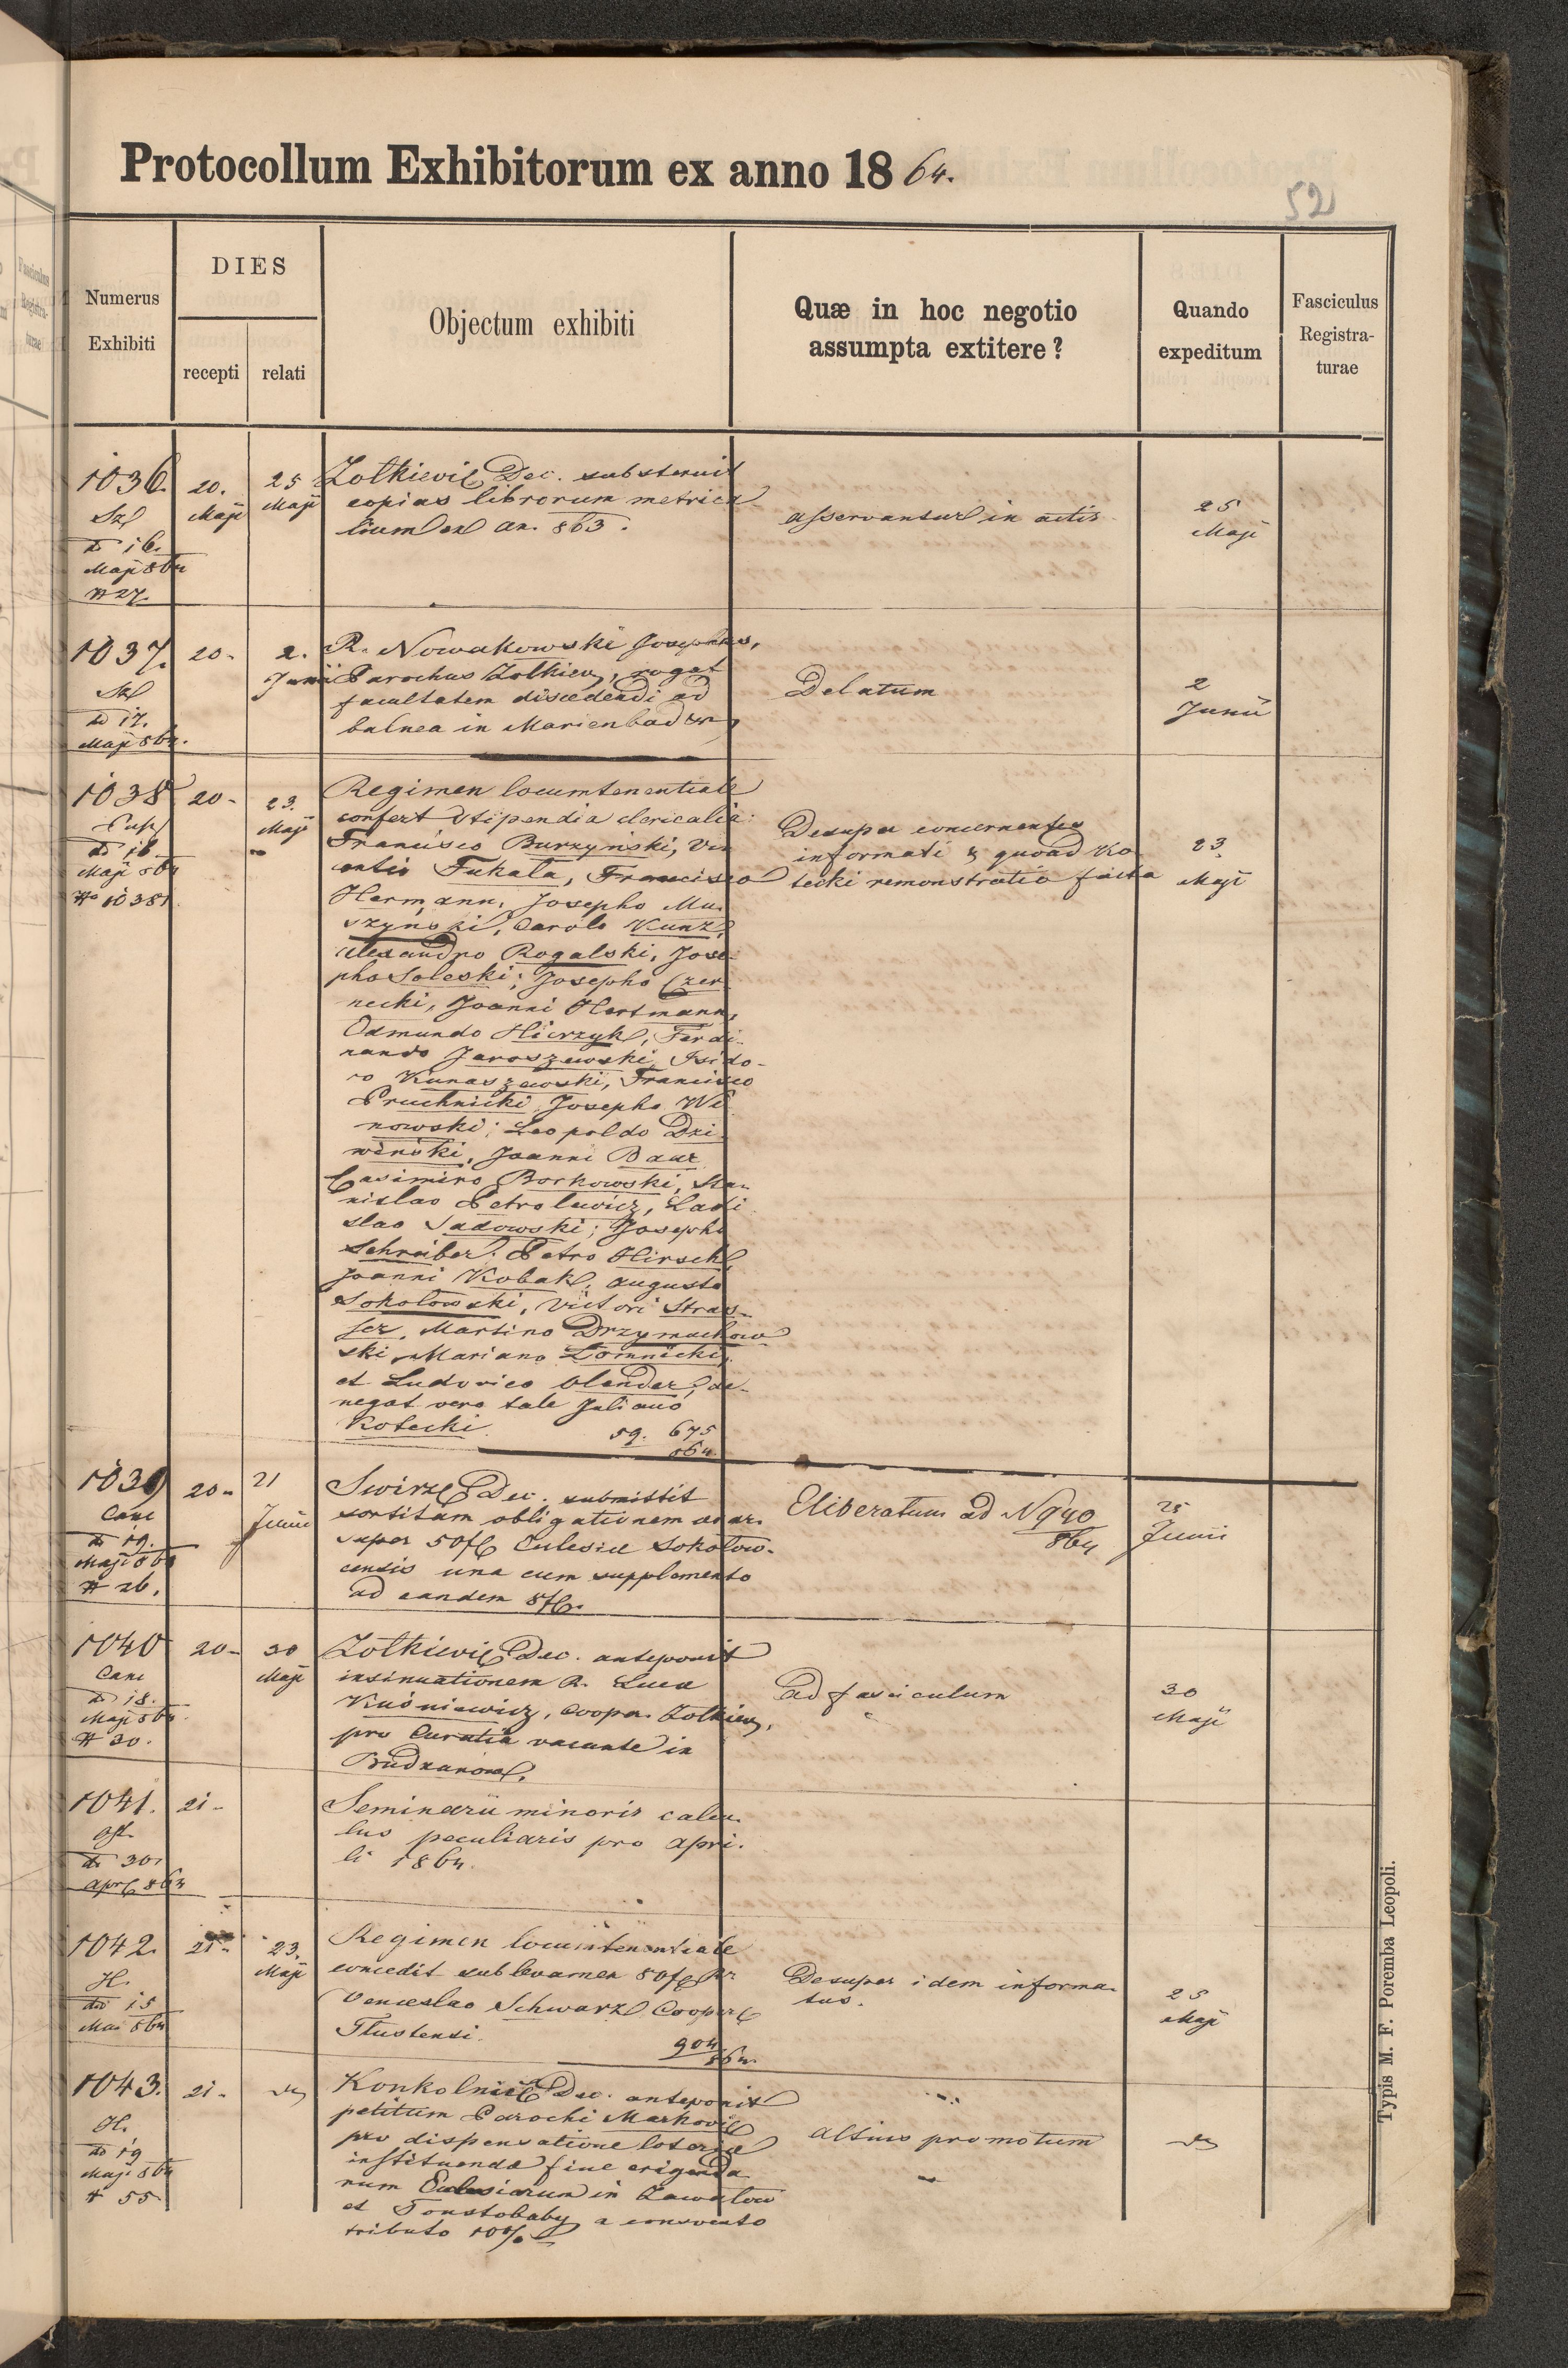 Protocollum Exhibitorum ex anno 1864.
52
Numerus Exhibiti
DIES
recepti
relati
Objectum exhibiti
Quæ in hoc negotio
assumpta extitere?
Quando
expeditum
Fasciculus
Registra-
turae
1036
20.
Maji
25
Maji
16.
Maji 864
N 27.
Zolkievi Dec. substernit
copias librorum metrica
lium ex an. 863.
asservantur in actis
25
Maji
1037.
20.
2.
Junii
17.
Maji 864.
R. Nowakowski Josephus,
Parochus Zolkiev, rogat
facultatem discedendi ad
balnea in Marienbad
Delatum
2
Junii
1038
20.
23.
Maji
Maji 864
Regimen locumtenentiale
confert stipendia clericalia:
Francisco Burzyński, Vin
centio Fukala, Francisco
Hermann, Josepho Mu
szyński, Carolo Kunz,
Alexandro Rogalski, Jose
pho Soleski; Josepho Czer
necki, Joanni Hartmann,
Edmundo Hierzyk, Ferdi
nando Jaroszewski, Isido-
ro Kunaszewski, Francisco
Pruchnicki, Josepho Wi
nowski; Leopoldo Dzi
wiński, Joanni Baur
Casimiro Borkowski, Sta
nislao Petrolewicz, Ladi
slao Sadowski; Josepho
Schreiber. Petro Hirsch,
Joanni Kobak, Augusto
Sokołowski, Victori Stras
ser, Martino Drzymuchow
ski, Mariano Łomnicki,
et Ludovico Olender, de-
negat vero tale Juliano
Kotecki
59. 675
864.
Desuper concernentes
informati & quoad Ko
tecki remonstratio facta
23
Maji
1039
20.
21
Junii
19.
Maji 864
N 26.
Swirz Dec. submittit
sortitam obligationem aerar.
super 50f Ecclesiæ Sokołow-
censis una cum supplemento
ad eandem 8f.
Eliberatum ad N 940
864
25
Junii
1040
20.
30
Maji
18.
Maji 864.
N 30.
Zolkievi Dec. anteponit
insinuationem R. Lucæ
Kuśniewicz, Cooper. Zolkiev,
pro Curatia vacante in
Budzanów.
Ad fasciculum
30
Maji
1041.
21.
30
Apr 864
Seminarii minoris calcu
lus peculiaris pro Apri.
li 1864.
1042.
21.
23.
Maji
H.
15
Mai 864
Regimen locumtenentiale
concedit sublevamen 80f
Venceslao Schwarz Cooper
Tlustensi.
904
864.
Desuper idem informa
tus.
23
Maji
1043.
21.
H.
19
Maji 864
N 55
Konkolni Dec. anteponit
petitum Parochi Markovi
pro dispensatione loteriæ
instituendæ fine erigenda
rum Ecclesiarum in Zawalow
et Toustobaby a consueto
tributo 10%
Altius promotum
Typis M. F. Poremba Leopoli.